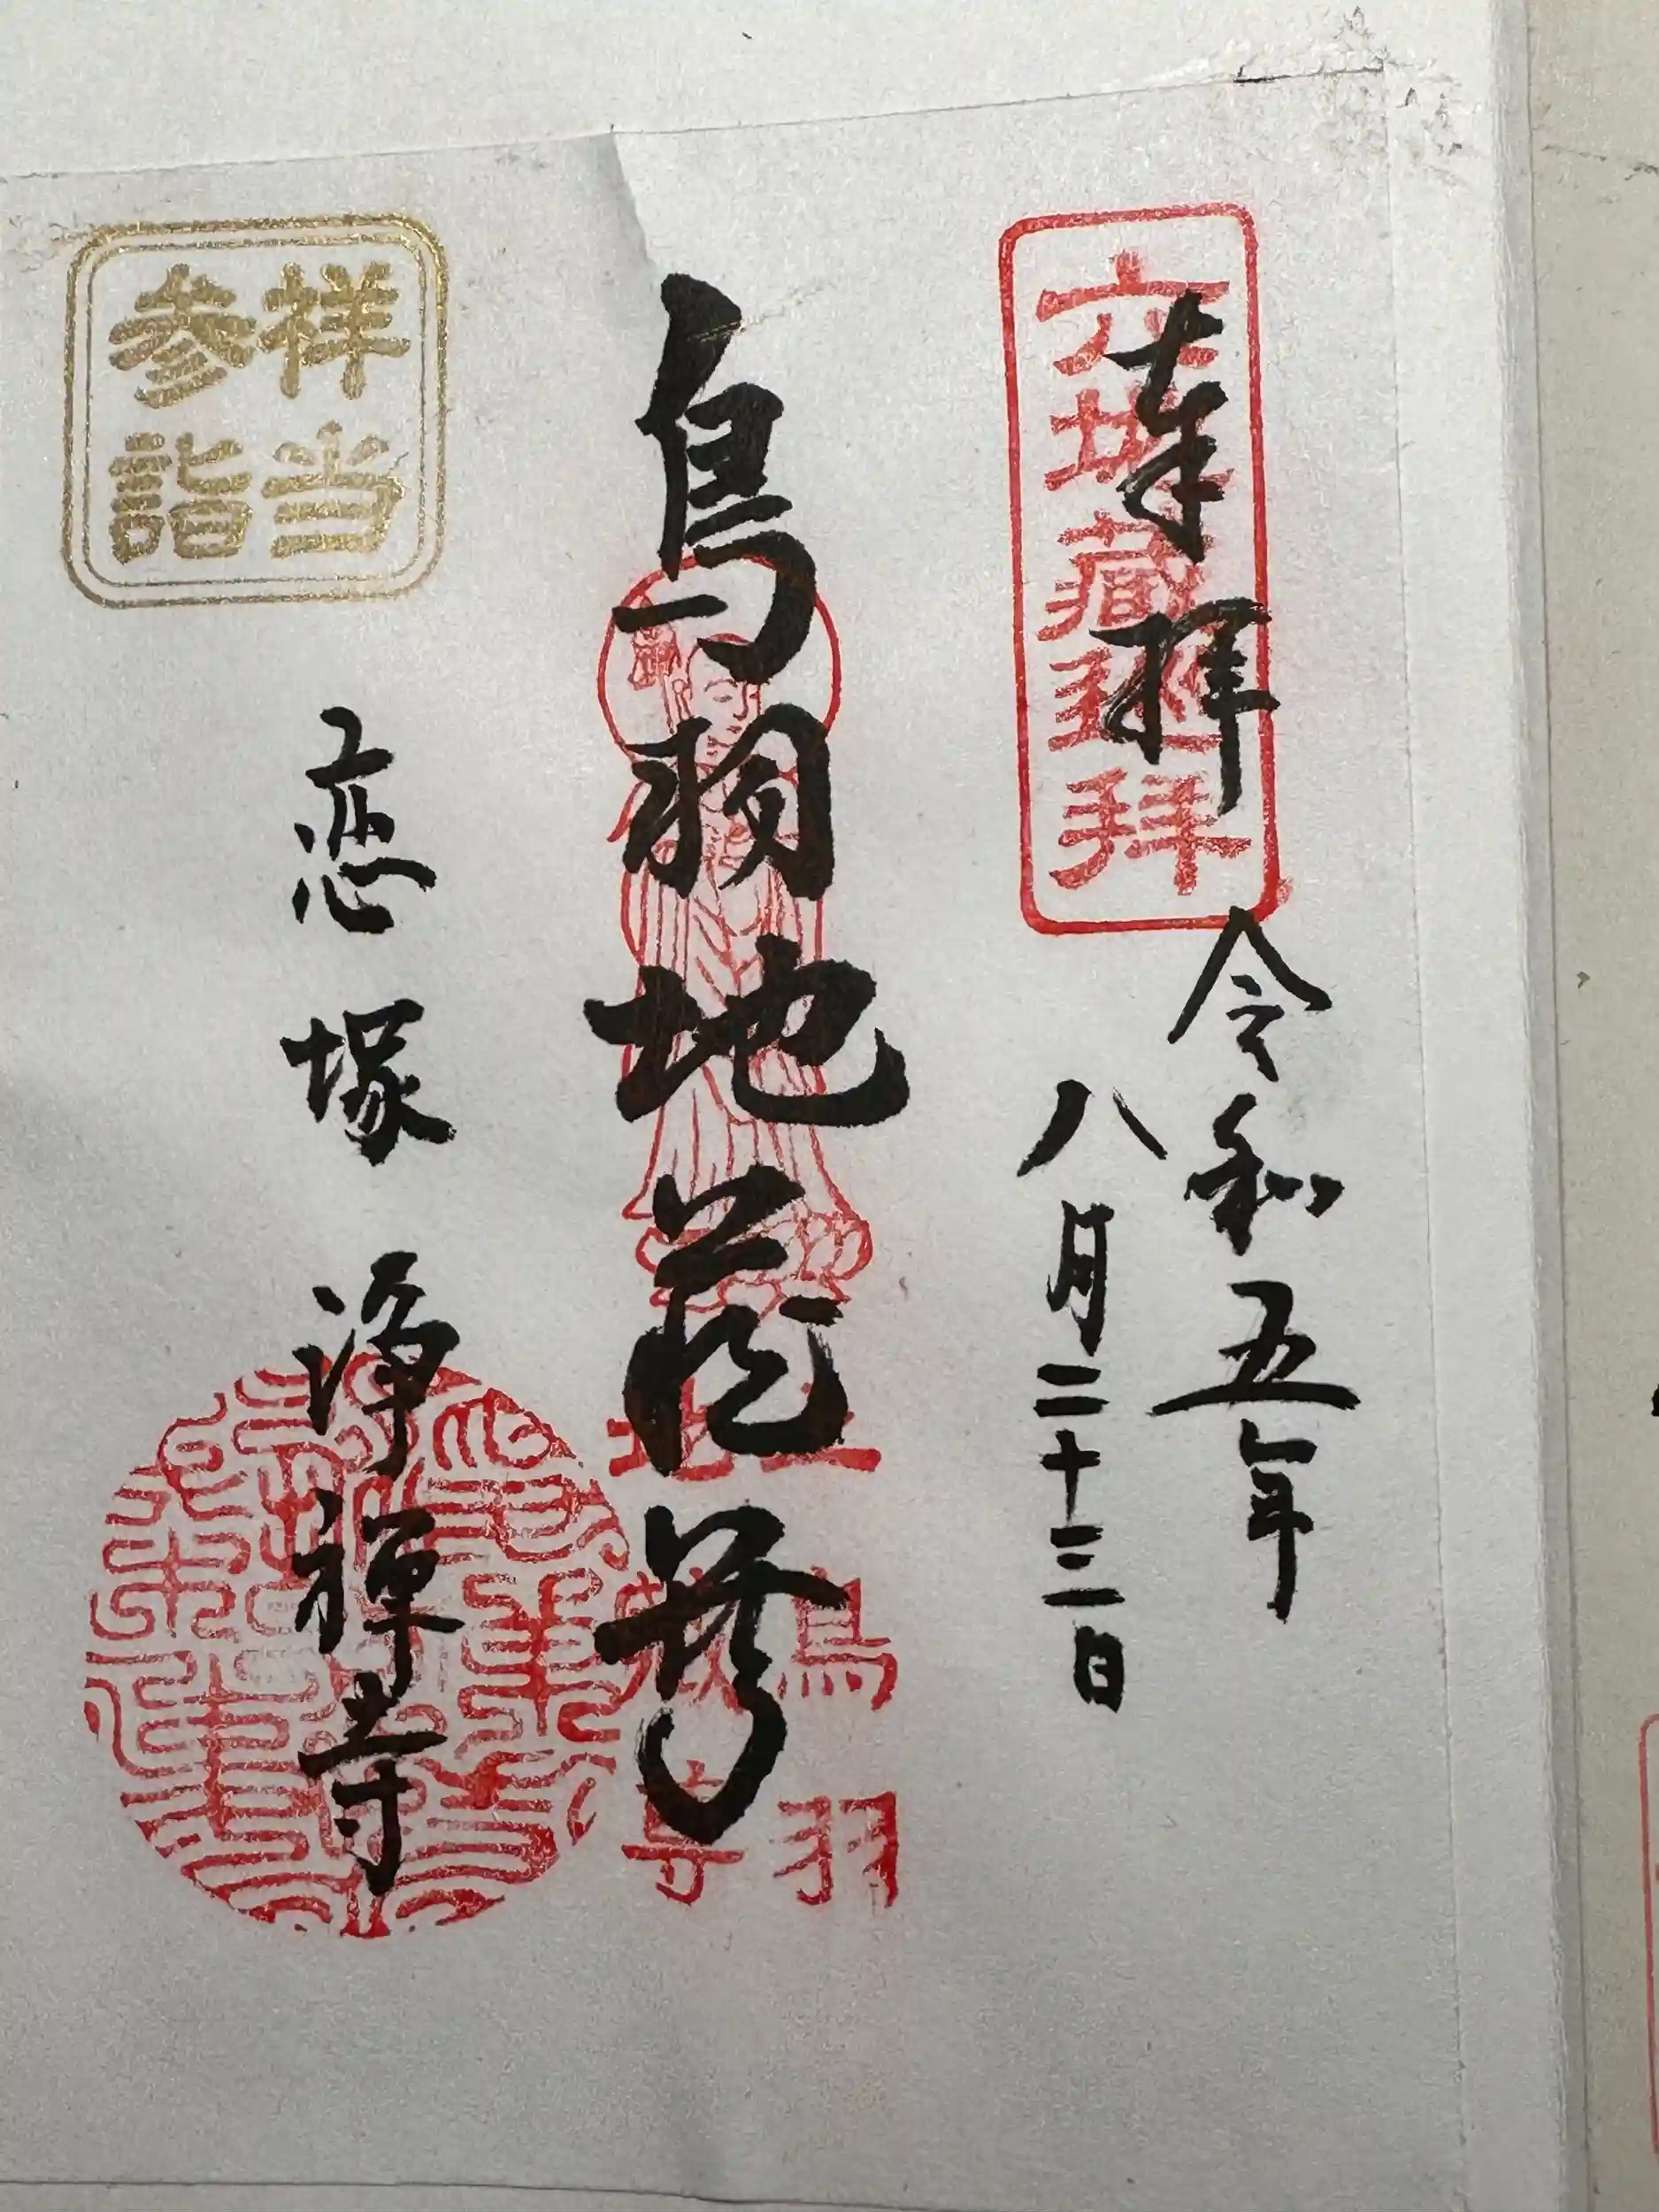 奉拝
六地蔵巡拝
令和五年
八月二十三日
鳥羽地蔵尊
鳥羽
恋塚浄禅寺
祥当
参詣